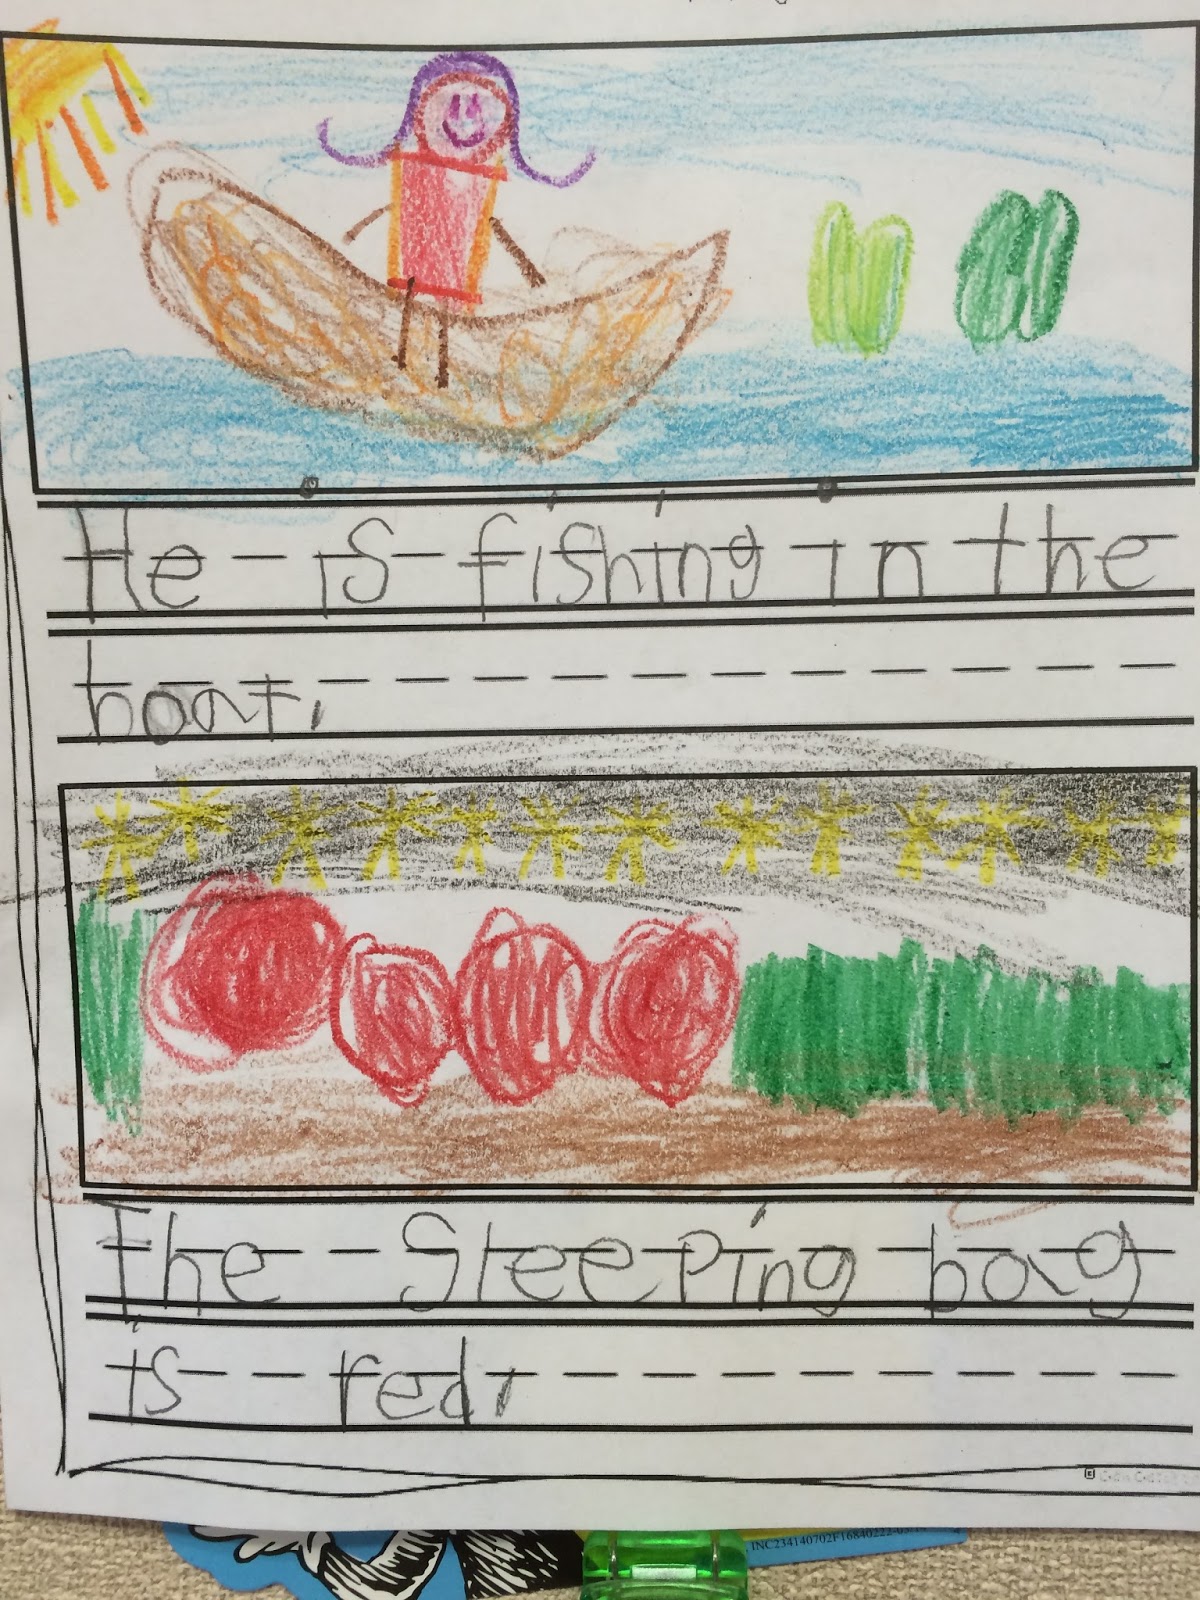 He is fishing in the
boat.
The Sleeping bag
is red.
INC234140702F16840222-03